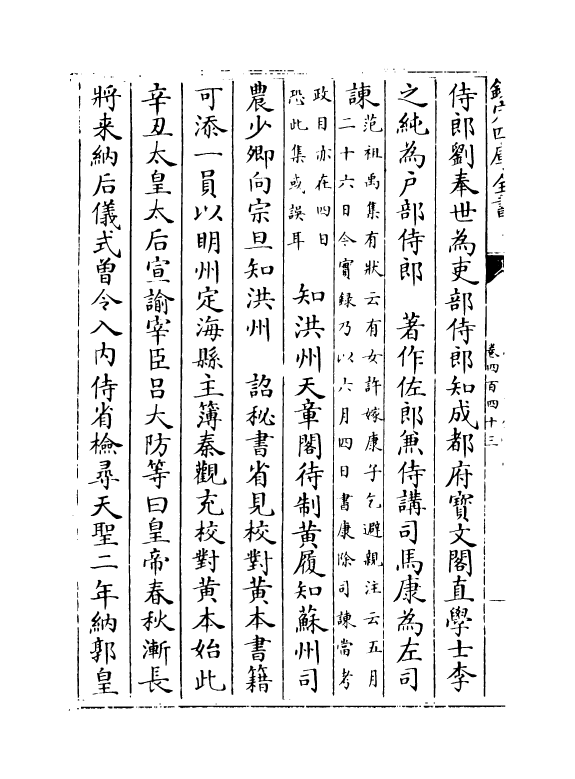 欽定四庫全書
卷四百四十三
侍郎劉奉世為吏部侍郎知成都府寶文閣直學士李
之純為户部侍郎　著作佐郎兼侍講司馬康為左司
諫范祖禹集有狀云有女許嫁康子乞避親注云五月
二十六日今實録乃以六月四日書康除司諫當考
政目亦在四日
恐此集或誤耳　知洪州天章閣待制黄履知蘇州司
農少卿向宗旦知洪州　詔秘書省見校對黄本書籍
可添一員以明州定海縣主簿秦觀充校對黄本始此
辛丑太皇太后宣諭宰臣吕大防等曰皇帝春秋漸長
將来納后儀式曽令入内侍省檢尋天聖二年納郭皇